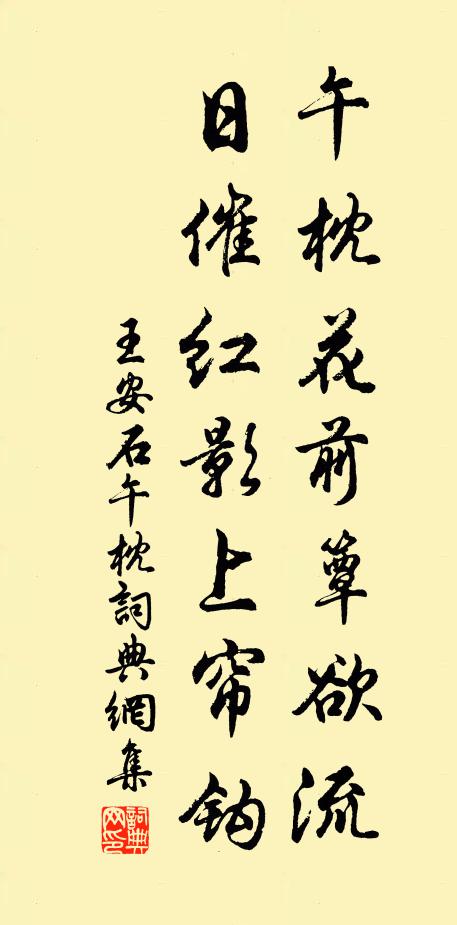 午枕花前簟欲流
日催红影上帘钩
王安石午枕詞典網集
詞典網印